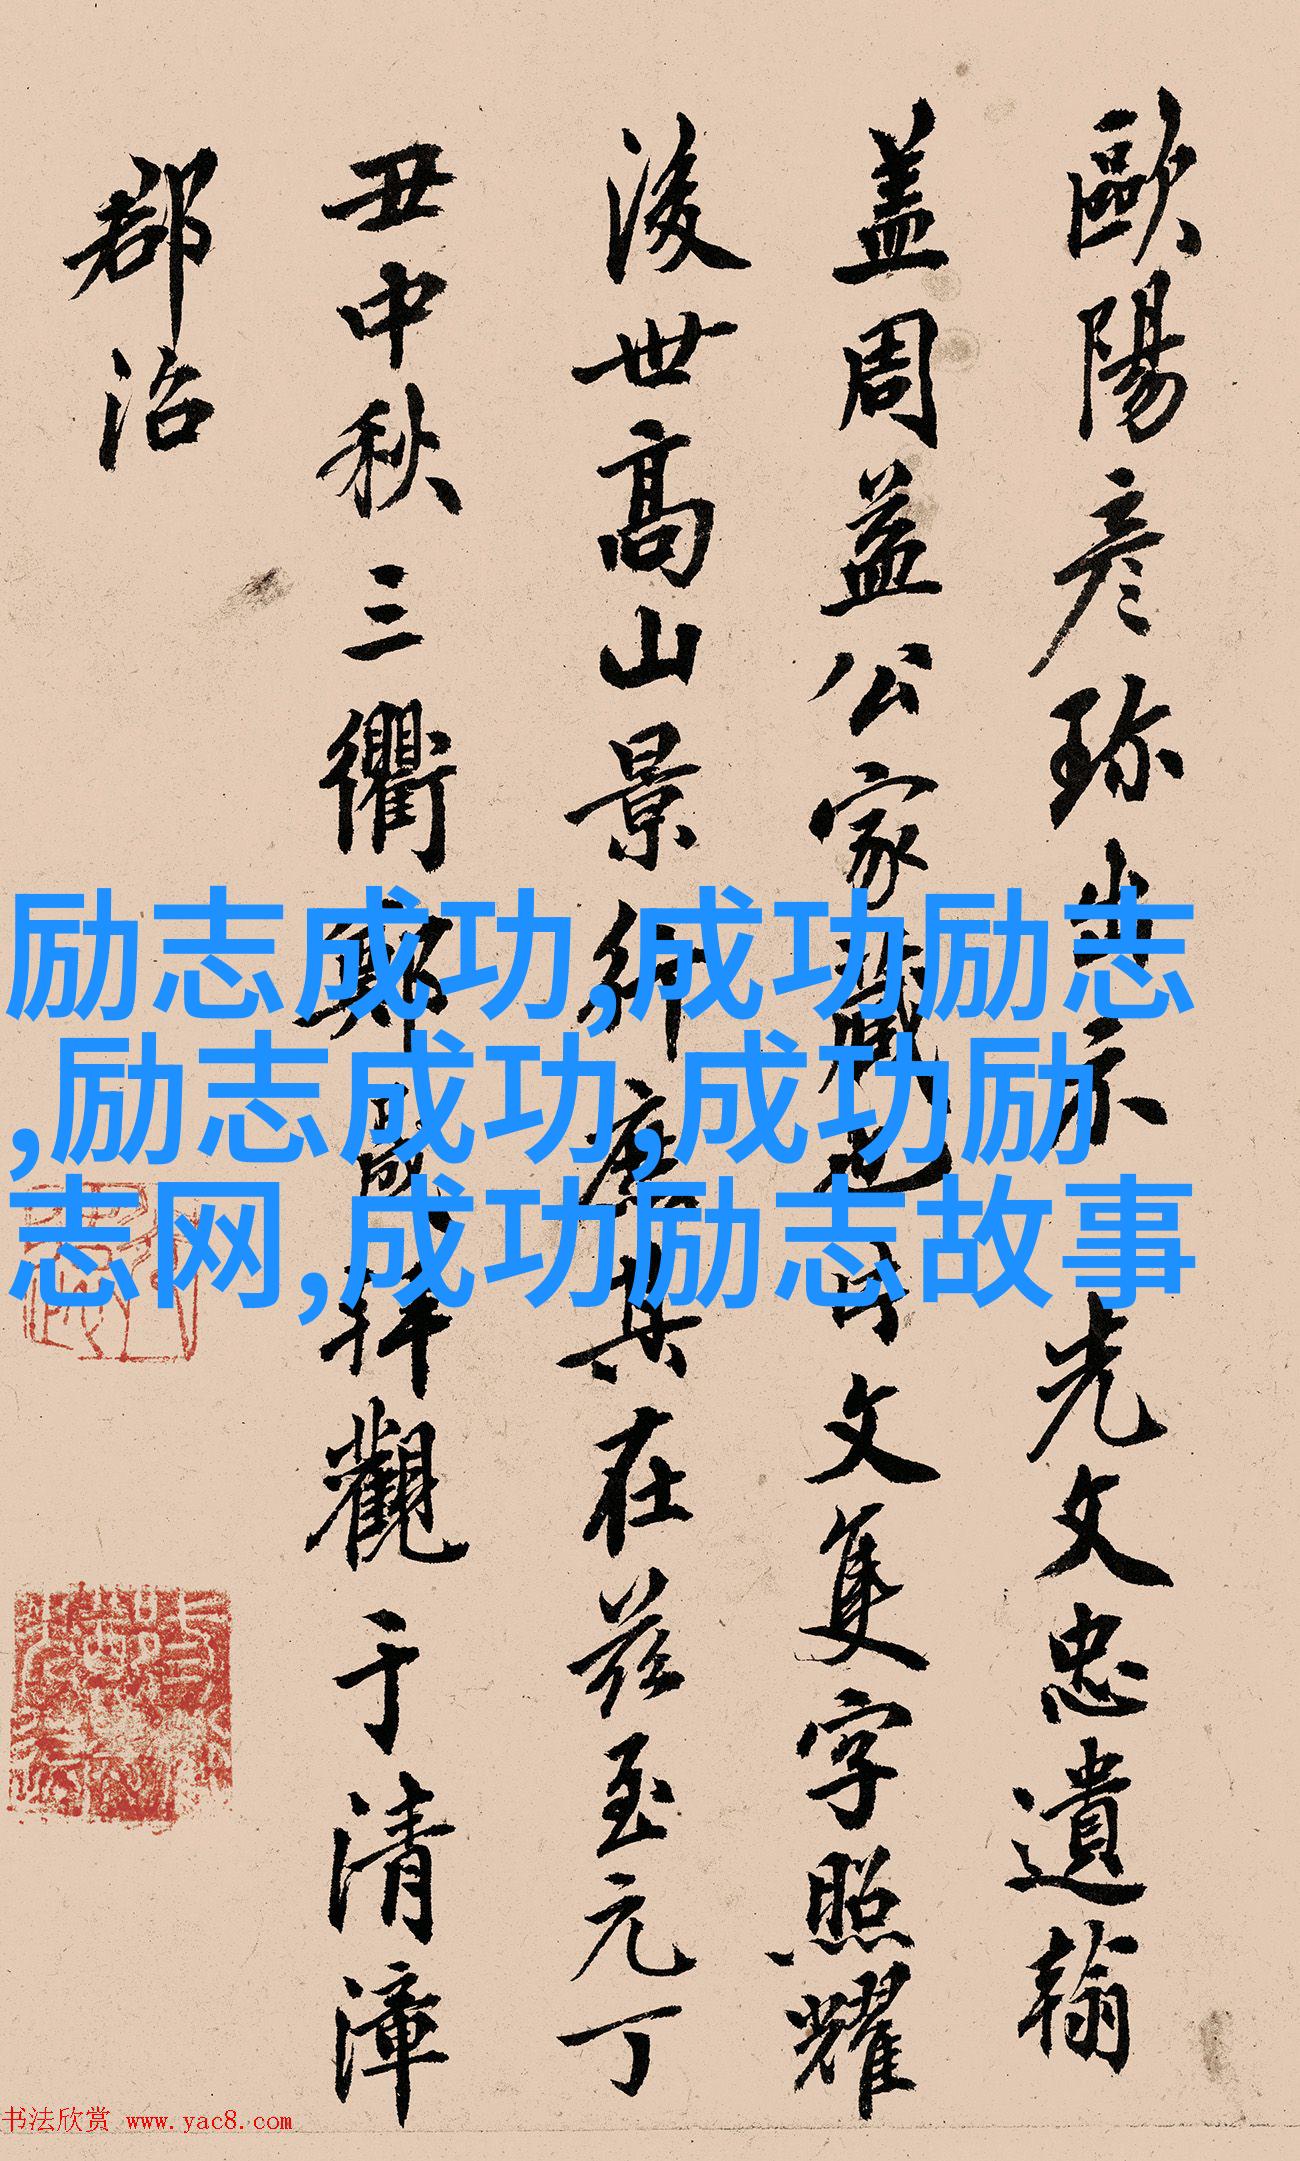 歐陽彦珎出示 光文忠遺翰
盖周益公家藏也片文隻字照耀
後世高山景仰應其在茲至元丁
丑中秋三衢鄭 拜觀于清漳
郡治
励志成功,成功励志
,励志成功,成功励
志网,成功励志故事
书法欣赏 www.yac8.com